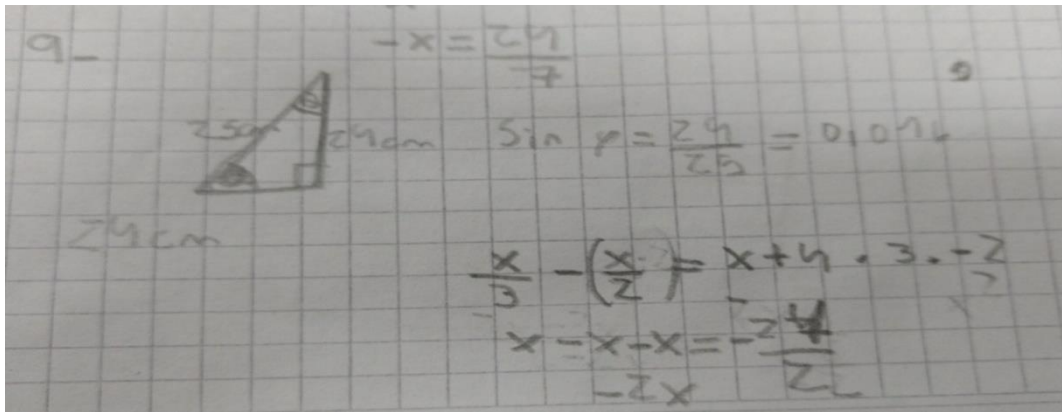 9_
-x = 24/7
25cm
24cm
Sin φ = 24/25 =
24cm
x/3 - (x/2) = x+4 · 3 · -2
x - x - x = -24/2
-2x